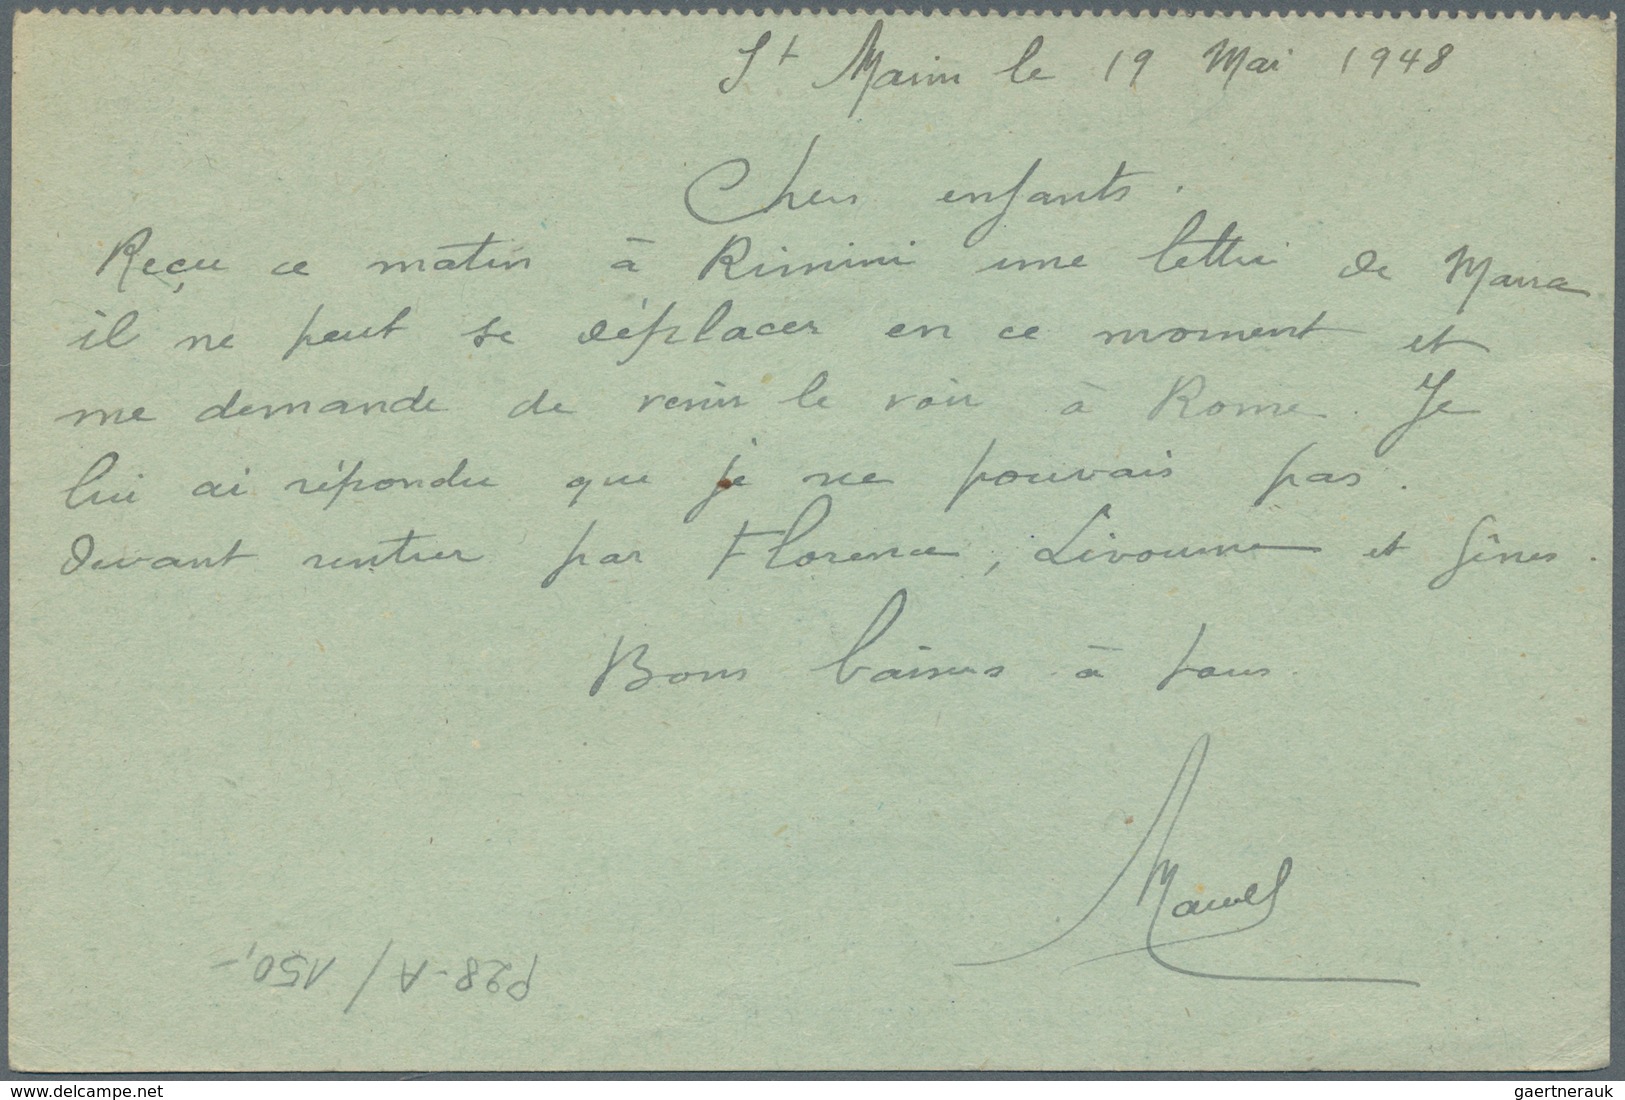 St Marin le 19 Mai 1948
Chers enfants.
Reçu ce matin à Rimini une lettre de
il ne peut se déplacer en ce moment et
me demande de venir le voir à Rome. Je
lui ai répondu que je ne pouvais pas.
Devant rentrer par Florence, Livourne et Gênes.
Bons baisers à tous.
Marcel
P28-A/150,-
www.delcampe.net
gaertnerauk